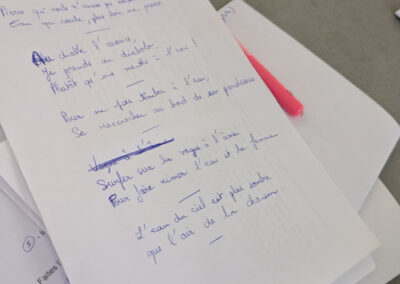 Pierre qui roule n'amasse pas
Eau qui coule, plus loin me pousse
Au diable l'avarice,
Je prends un diabolo
Plutôt qu'une menthe à l'eau !
Pour ne pas tomber à l'eau,
Se raccrocher au bord de son
Surfer sur la vague à l'âme
Pour faire rimer l'eau et la femme
L'eau du ciel est plus sombre
que l'air de ton chanson.
Faites l